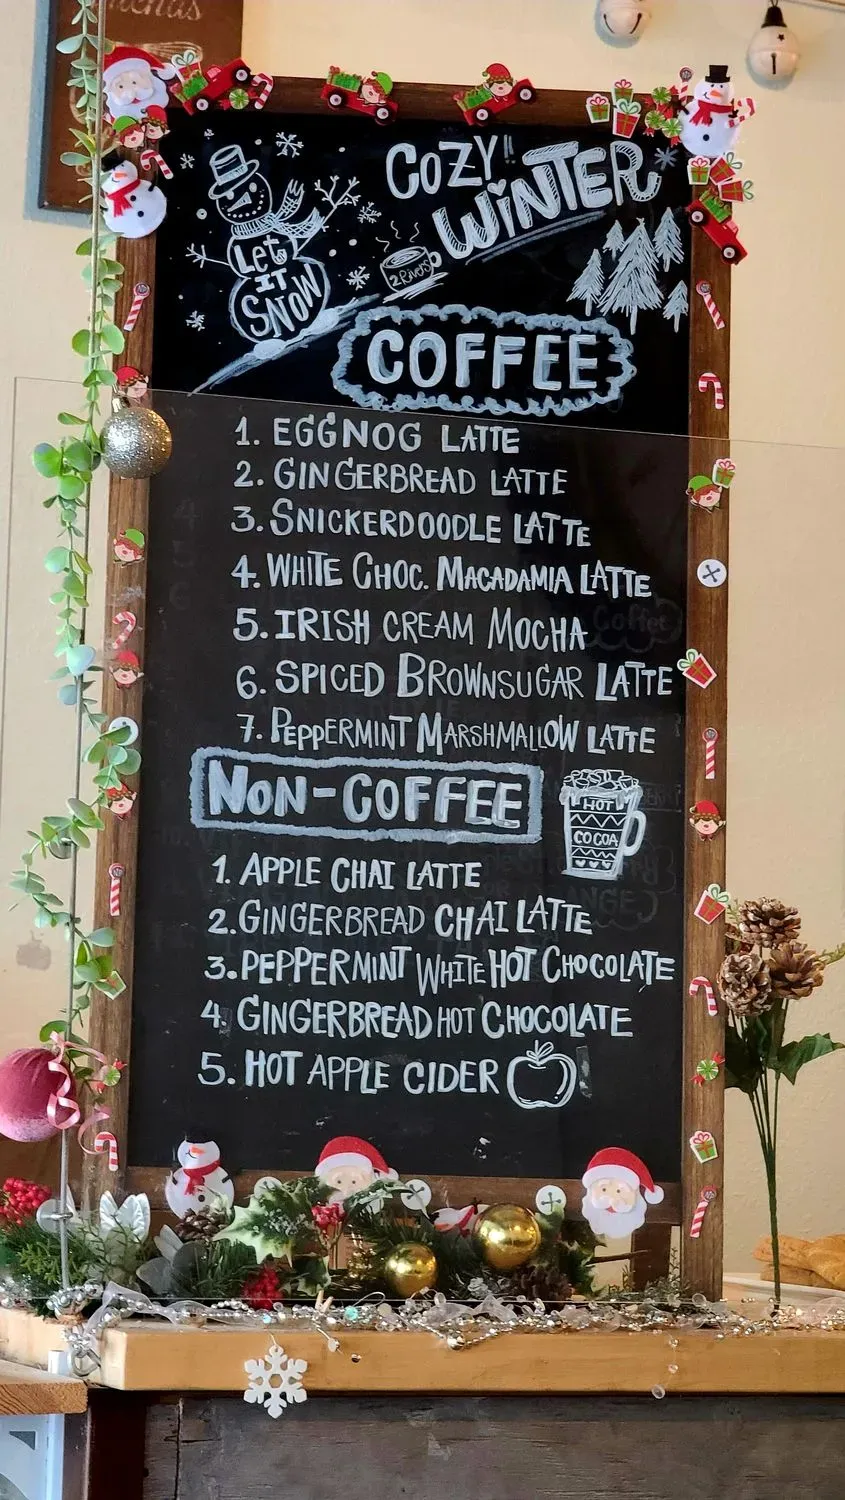 COZY!!
WINTER
Let
IT
SNOW
2 Rivers
COFFEE
1. EGGNOG LATTE
2. GINGERBREAD LATTE
3. SNICKERDOODLE LATTE
4. WHITE CHOC. MACADAMIA LATTE
5. IRISH CREAM MOCHA
6. SPICED BROWNSUGAR LATTE
7. PEPPERMINT MARSHMALLOW LATTE
NON-COFFEE
HOT
COCOA
1. APPLE CHAI LATTE
2. GINGERBREAD CHAI LATTE
3. PEPPERMINT WHITE HOT CHOCOLATE
4. GINGERBREAD HOT CHOCOLATE
5. HOT APPLE CIDER